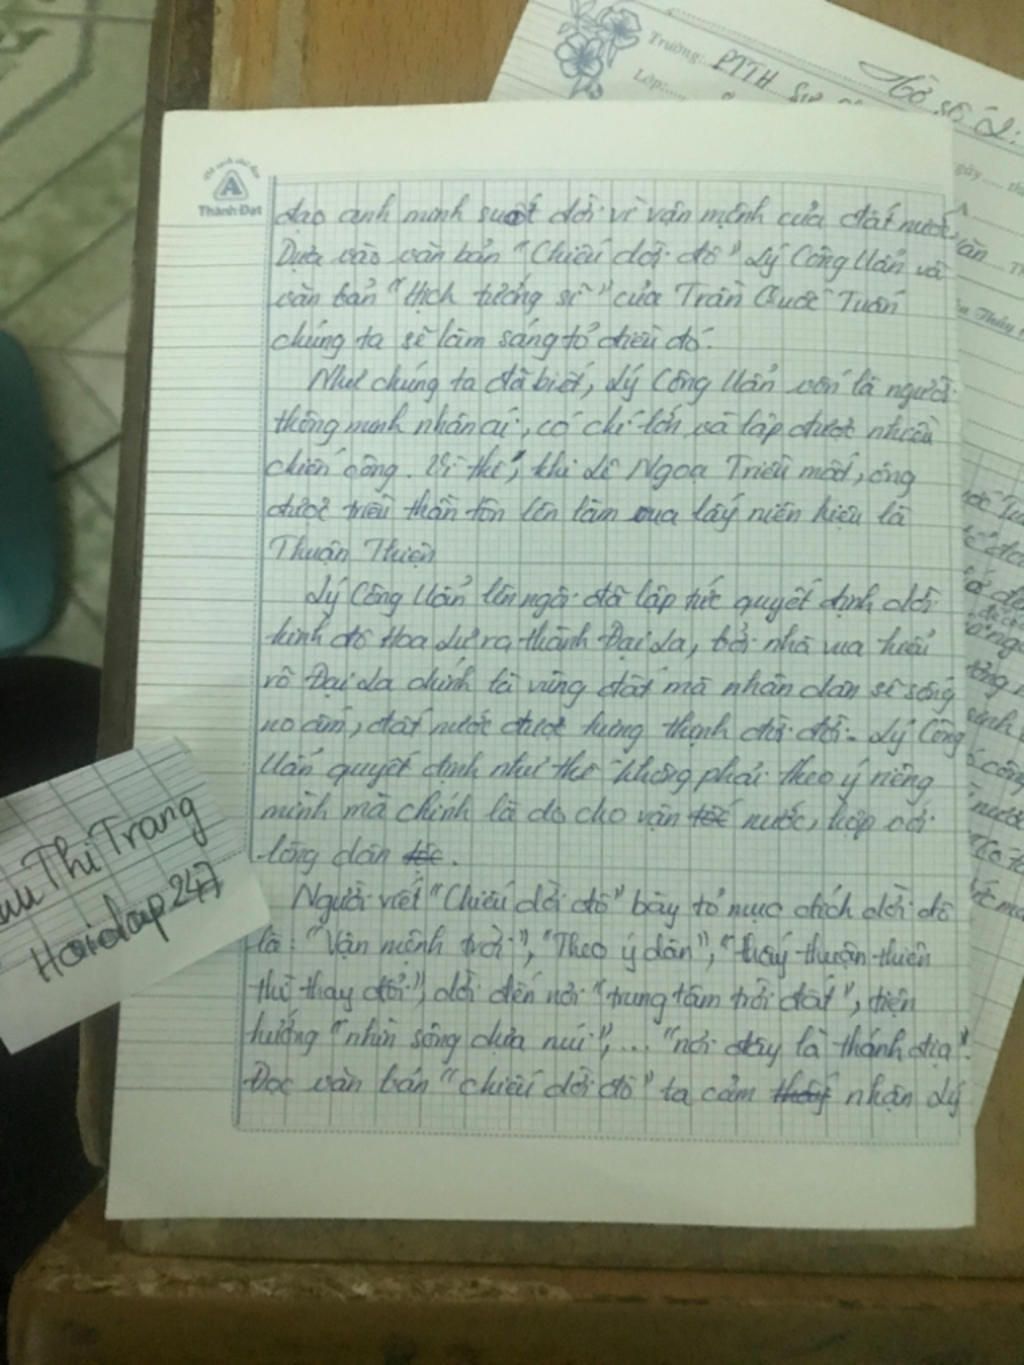 Trường:.. PTTH
Lớp:...
Tờ số 2:
Vở sạch chữ đẹp
A
Thành Đạt
đạo anh minh suốt đời vì vận mệnh của đất nước
Dựa vào văn bản "Chiếu dời đô" Lý Công Uẩn và
văn bản "Hịch tướng sĩ" của Trần Quốc Tuấn
chúng ta sẽ làm sáng tỏ điều đó.
Như chúng ta đã biết, Lý Công Uẩn vốn là người
thông minh nhân ái, có chí lớn và lập được nhiều
chiến công. Vì thế, khi Lê Ngoạ Triều mất, ông
được triều thần tôn lên làm vua lấy niên hiệu là
Thuận Thiện
Lý Công Uẩn lên ngôi đã lập tức quyết định dời
kinh đô Hoa Lư ra thành Đại La, bởi nhà vua hiểu
rõ Đại La chính là vùng đất mà nhân dân sẽ sống
no ấm, đất nước được hưng thịnh đời đời. Lý Công
Uẩn quyết định như thế không phải theo ý riêng
mình mà chính là do cho vận tốc nước, hợp với
lòng dân tộc.
Người viết "Chiếu dời đô" bày tỏ mục đích dời đô
là: "Vận mệnh trời", "Theo ý dân", "thấy thuận thiên
thì thay đổi", dời đến nơi "trung tâm trời đất", tiện
hướng "nhìn sông dựa núi",... "nơi đây là thánh địa".
Đọc văn bản "chiếu dời đô" ta cảm thấy nhận Lý
Thị Trang
Hoidap247